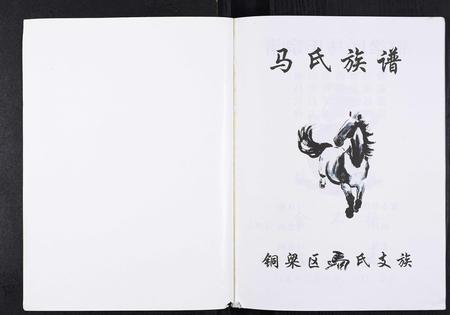 马氏族谱
铜梁区馬氏支族